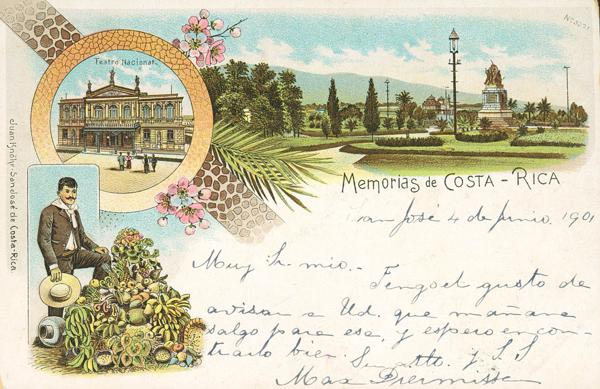 Nº 3071
Teatro Nacional.
Juan Knöhr - San José de Costa-Rica.
Memorias de COSTA-RICA
San Jose 4 de Junio 1901
Muy Sr. mio.-
Tengo el gusto de
avisar a Ud. que mañana
salgo para esa, y espero encon-
trarlo bien. Su atto. y S.S.
Max